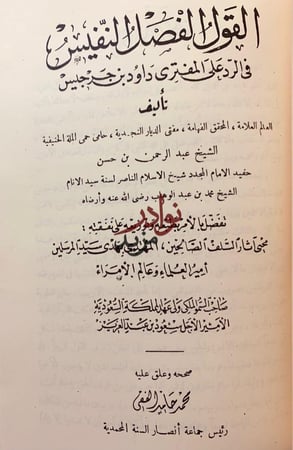 القول الفصل النفيس
في الرد على المفترى داود بن جرجيس
تأليف
العالم العلامة، المحقق الفهامة، مفتى الديار النجدية، حامى حمى الملة الحنيفية
الشيخ عبد الرحمن بن حسن
حفيد الامام المجدد شيخ الاسلام الناصر لسنة سيد الانام
الشيخ محمد بن عبد الوهاب رضى الله عنه وأرضاه
نوادر
تفضل بالأمر على نفقته:
محيى آثار السلف الصالحين، سيد المرسلين
أمير العلماء وعالم الأمراء
صاحب السمو الملكي ولي عهد المملكة السعودية
الأمير الأجل سعود بن عبد العزيز
صححه وعلق عليه
محمد حامد الفقي
رئيس جماعة أنصار السنة المحمدية